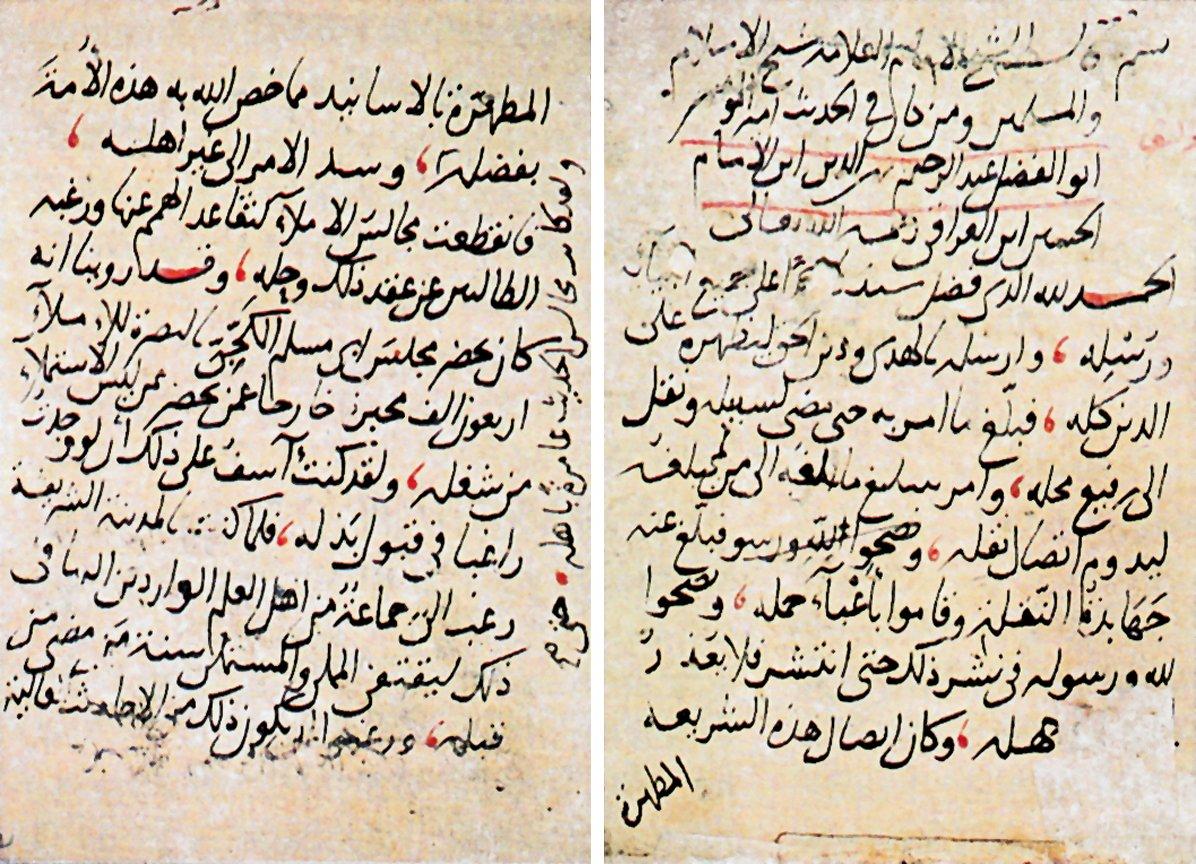 الشيخ الامام العلامة شيخ الاسلام
والمسلمين ومن قال في الحديث
ابو الفضل عبد الرحيم الدين ابن الامام
الحسين ابن العراقي الله تعالى
الحمد لله الذي فضل على جميع
ورسله ، وارسله بالهدى ودين الحق ليظهره على
الدين كله ، فبلغ ما امر به حتى مضى لسبيله ونقل
الى رفيع محله ، وامر الى من
ليدوم اتصال نقله ، فبلغ عنه
جهابذة النقلة وقاموا بأعباء حمله ، ونصحوا
لله ورسوله في نشر ذلك حتى انتشر فلا
وكان اتصال هذه الشريعة
المطهرة
المطهرة بالاسانيد مما خص الله به هذه الأمة
بفضله ، وسد الامر الى غير اهله ،
فانقطعت مجالس الاملاء لتقاعد الهمم عنها ورغبة
الطالبين عن عقد ذلك وحله ، وقد روينا انه
كان يحضر مجلس ابي مسلم الكجي بالبصرة للاملاء
اربعون الف محبرة خارجا عمن يحضر الاستملاء
من شغله ، ولقد كنت آسف على ذلك ان لو وجدت
راغبا في قبول بذله ، فلما بالمدينة الشريفة
رغب الي جماعة من اهل العلم الواردين اليها في
ذلك ليقتفي المملي والمستملي سنة من مضى من
قبله ، يكون ذلك من
ولقد كانت مجالس الحديث عامرة باهله ،